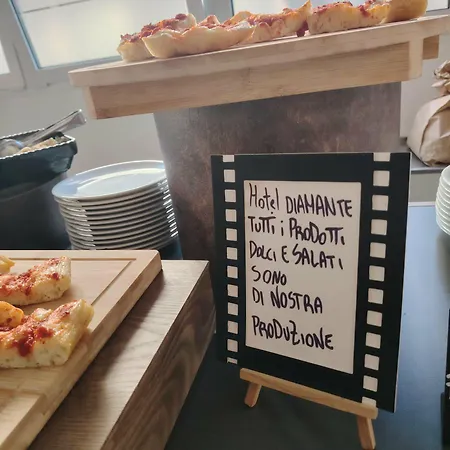 Hotel DIAMANTE
TUTTI i PRODOTTI
DOLCI E SALATI
SONO
DI NOSTRA
PRODUZIONE